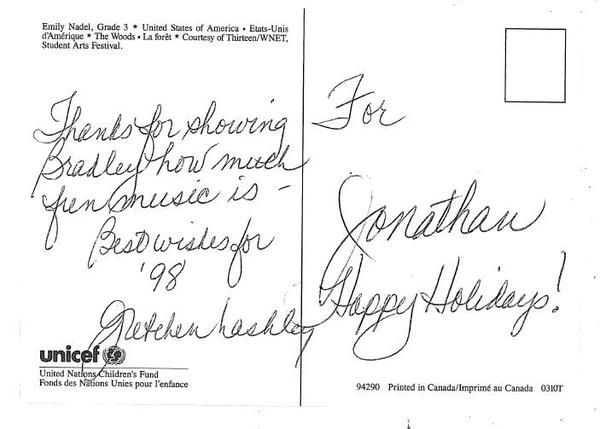 Emily Nadel, Grade 3 ★ United States of America • Etats-Unis
d'Amérique ★ The Woods • La forêt ★ Courtesy of Thirteen/WNET,
Student Arts Festival.
Thanks for showing
Bradley how much
fun music is –
Best wishes for
'98
Gretchen Lashley
For
Jonathan
Happy Holidays!
unicef
United Nations Children's Fund
Fonds des Nations Unies pour l'enfance
94290 Printed in Canada/Imprimé au Canada 0310T